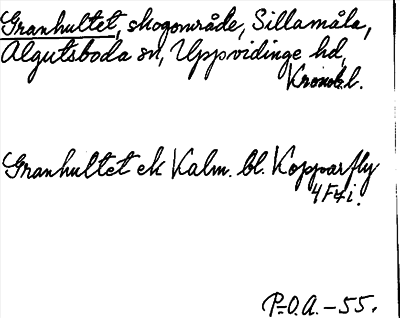 Granhultet, skogområde, Sillamåla,
Algutsboda sn, Uppvidinge hd,
Kronob.l.
Granhultet ek Kalm. bl. Kopparfly
4 F7 i.
P-O.A. -55.